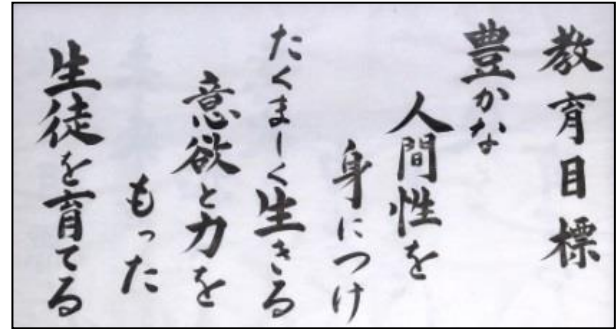 教育目標
豊かな
人間性を
身につけ
たくましく生きる
意欲と力を
もった
生徒を育てる